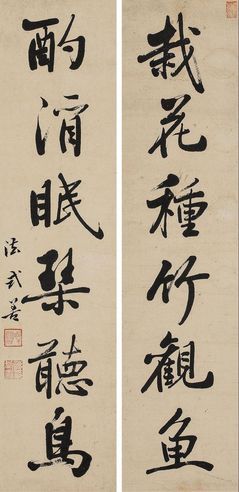 栽花種竹觀魚
酌酒眠琴聽鳥
法式善